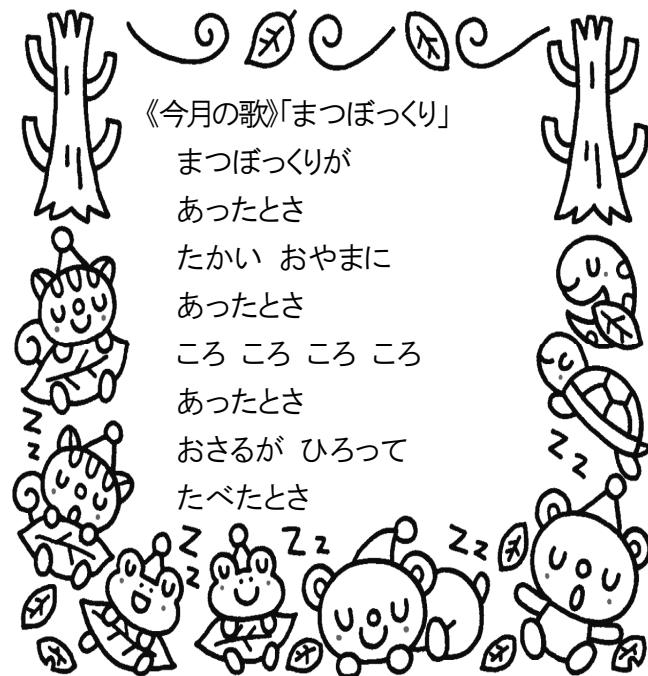 《今月の歌》「まつぼっくり」
まつぼっくりが
あったとさ
たかい おやまに
あったとさ
ころ ころ ころ ころ
あったとさ
おさるが ひろって
たべたとさ
Z z
Z z
Z z
Z z
Z z